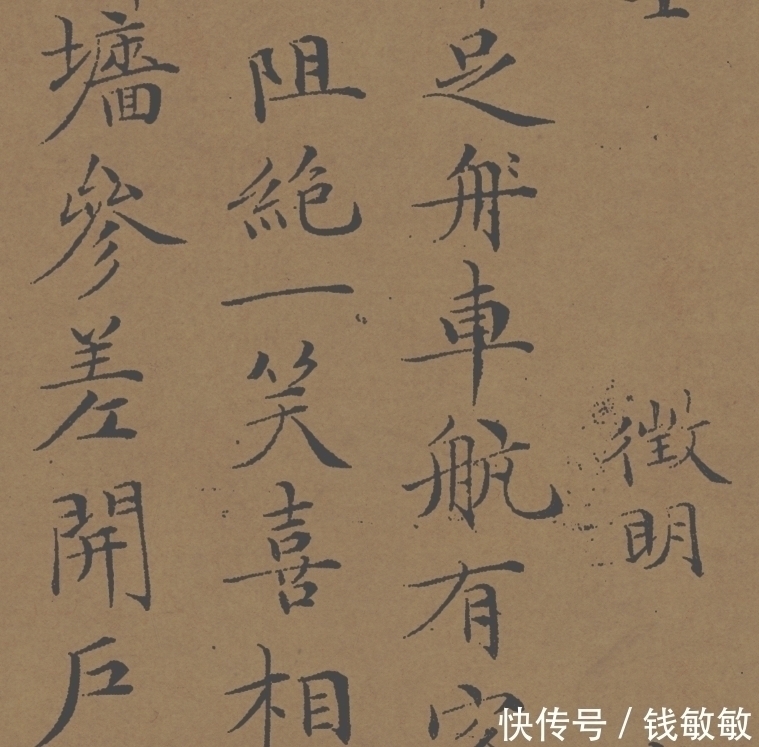 徵明
足舟車航有
阻絕一笑喜相
墻參差開戶
快传号 / 钱敏敏